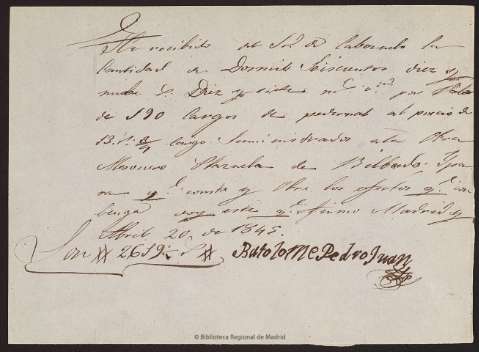 He recibido del Sor. de Taborada la
Cantidad de Dosmil Seiscientos diez y
nuebe Diez y siete por
de 190 Cargos de pedernal al precio de
13 cargo Suministrados a la Obra
Plazuela de Bilbado. Y pa
ra q.e conste y Obre los efectos q.e con
benga doy este q.e firmo Madrid y
Abril 20 de 1845.
Son # 2619 #
Batolome Pedro Juan
© Biblioteca Regional de Madrid